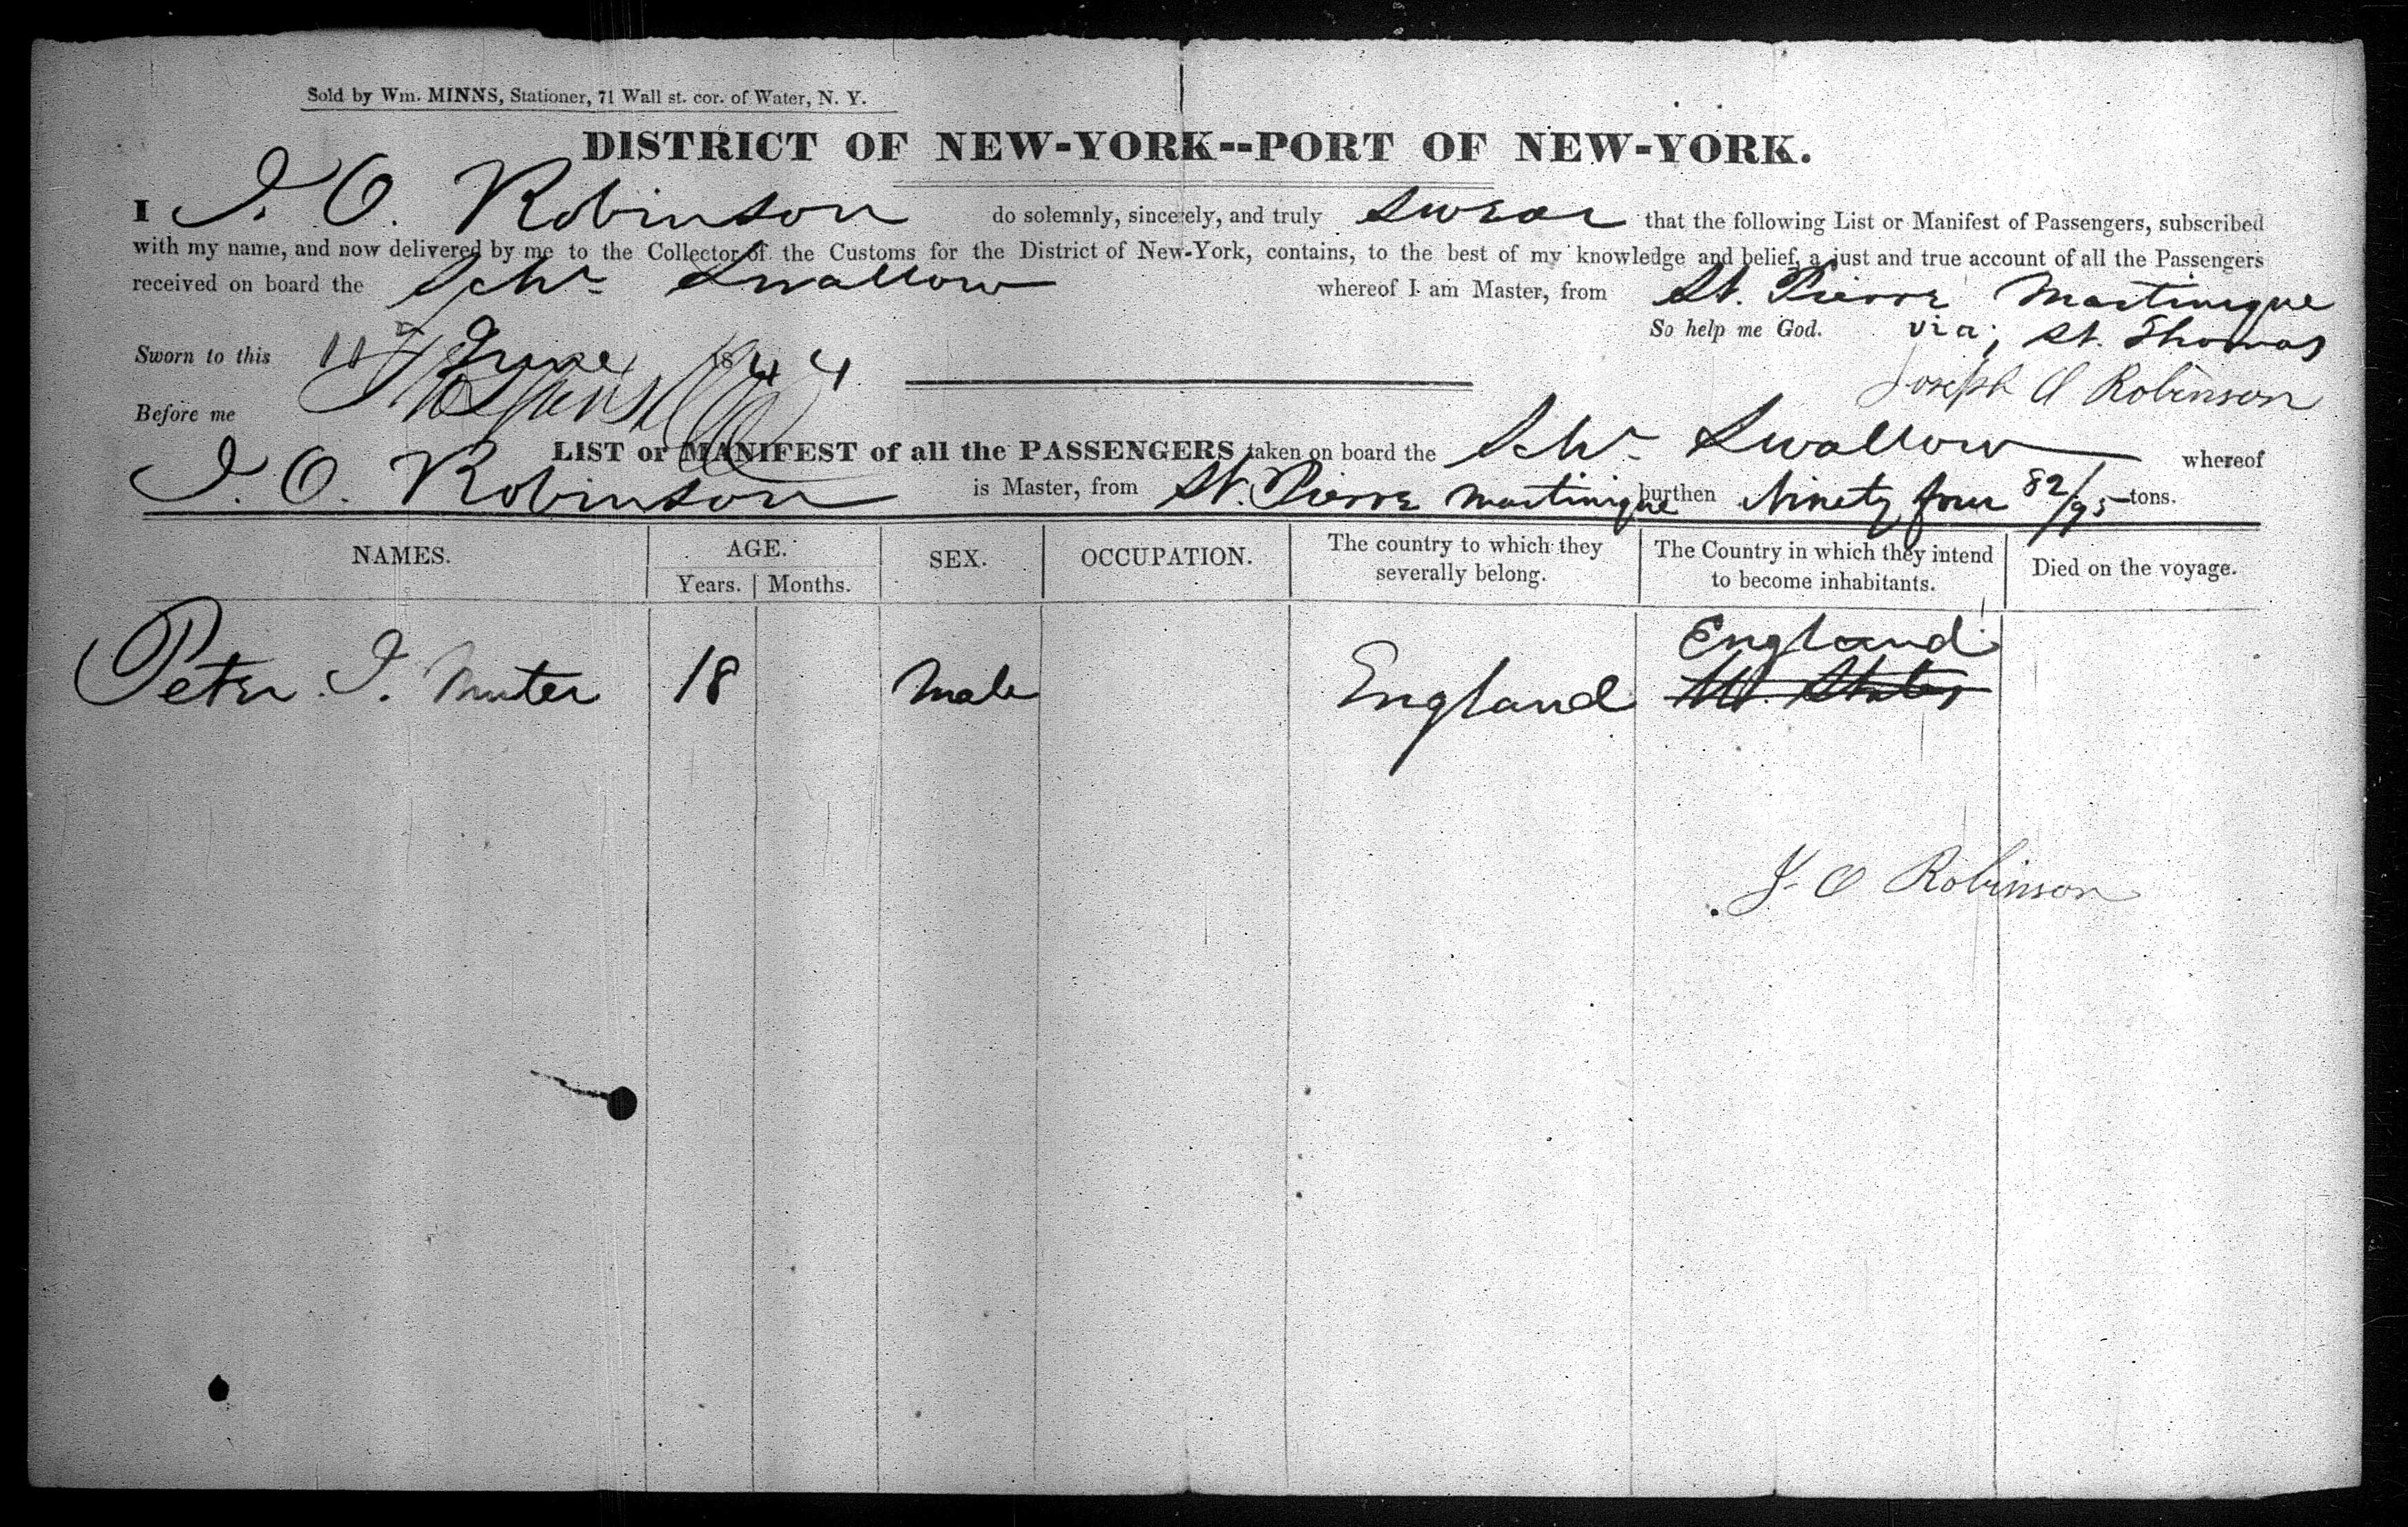 Sold by Wm. MINNS, Stationer, 71 Wall st. cor. of Water, N. Y.
DISTRICT OF NEW-YORK--PORT OF NEW-YORK.
I J. O. Robinson do solemnly, sincerely, and truly swear that the following List or Manifest of Passengers, subscribed
with my name, and now delivered by me to the Collector of the Customs for the District of New-York, contains, to the best of my knowledge and belief, a just and true account of all the Passengers
received on board the Schr Swallow whereof I am Master, from St. Pierre Martinique
So help me God. via; St. Thomas
Sworn to this 11 June 1844
Joseph O Robinson
Before me
LIST or MANIFEST of all the PASSENGERS taken on board the Schr Swallow whereof
J. O. Robinson is Master, from St. Pierre Martinique burthen Ninety four 82/95 tons.
NAMES. AGE. SEX. OCCUPATION. The country to which they severally belong. The Country in which they intend to become inhabitants. Died on the voyage.
Years. Months.
England
Peter J. Muter 18 Male England U. States
J. O Robinson